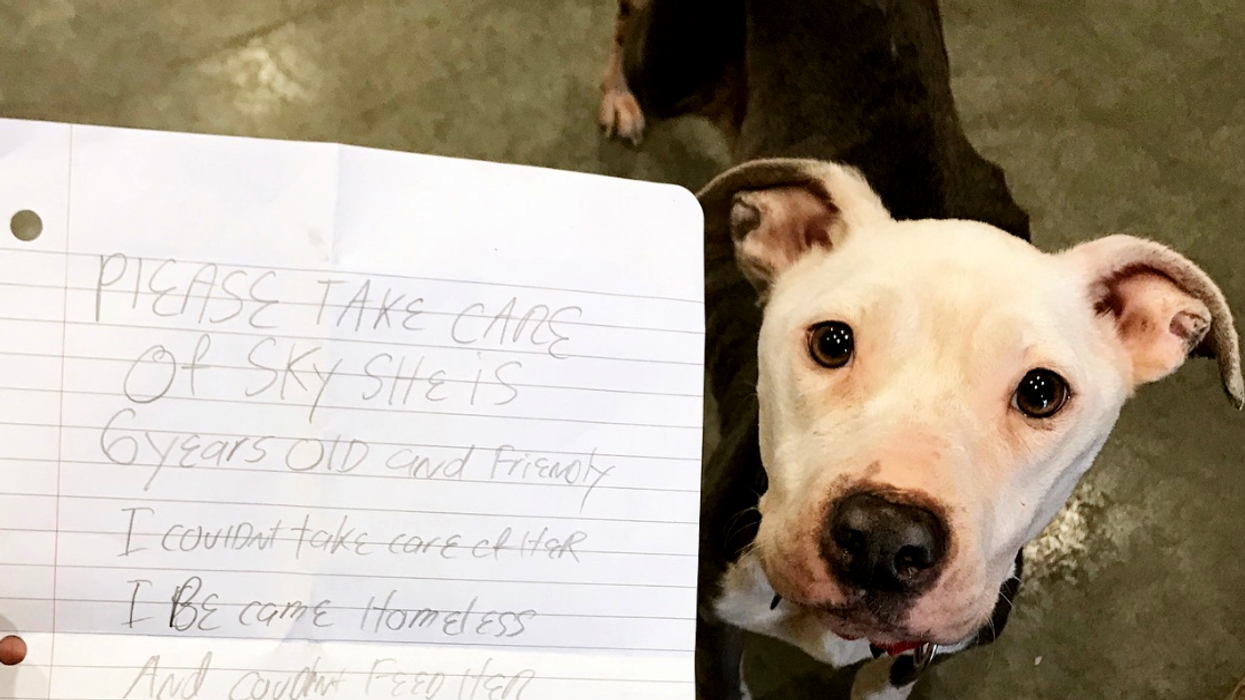 PlEASE TAKE CARE
Of SKy SHE iS
6 years OlD and FriENDly
I coulDNt take care of HER
I BE came Homeless
And couDNt FEED HER